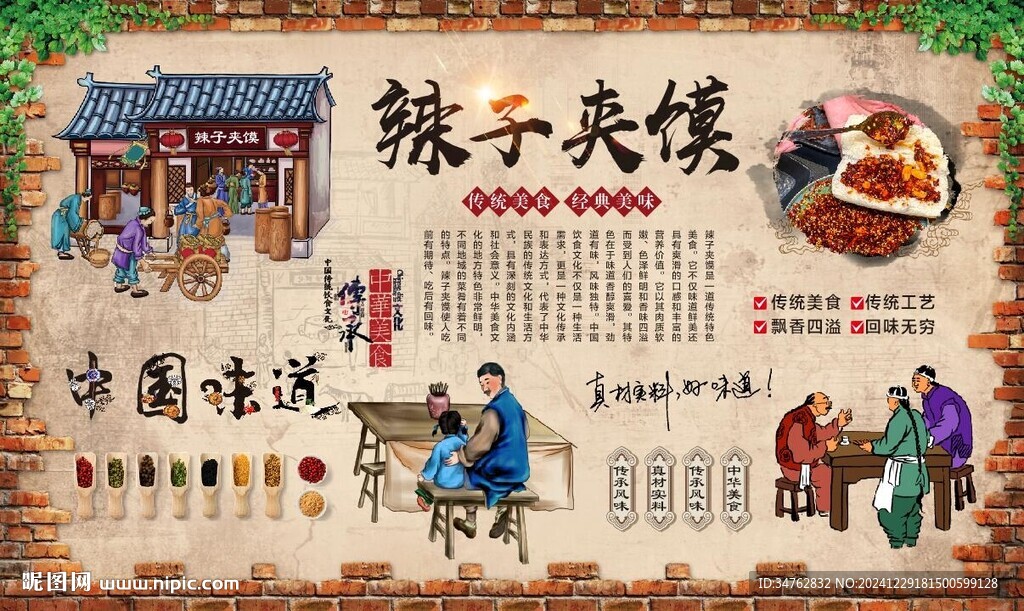 辣子夹馍
辣子夹馍
传统美食 经典美味
辣子夹馍是一道传统特色
美食。它不仅味道鲜美还
具有爽滑的口感和丰富的
营养价值。它以其肉质软
嫩、色泽鲜明和香味四溢
而受到人们的喜爱。其特
色在于味道香醇爽滑，劲
道有味，风味独特。中国
饮食文化不仅是一种生活
需求，更是一种文化传承
和表达方式，代表了中华
民族的传统文化和生活方
式，具有深刻的文化内涵
和社会意义。中华美食文
化的地方特色非常鲜明，
不同地域的菜肴有着不同
的特点。辣子夹馍使人吃
前有期待、吃后有回味。
中国传统饮食文化
傳承
中華美食
文化
传统美食 传统工艺
飘香四溢 回味无穷
中国味道
真材实料,好味道!
传承风味
真材实料
传承风味
中华美食
昵图网 www.nipic.com
ID:34762832 NO:20241229181500599128